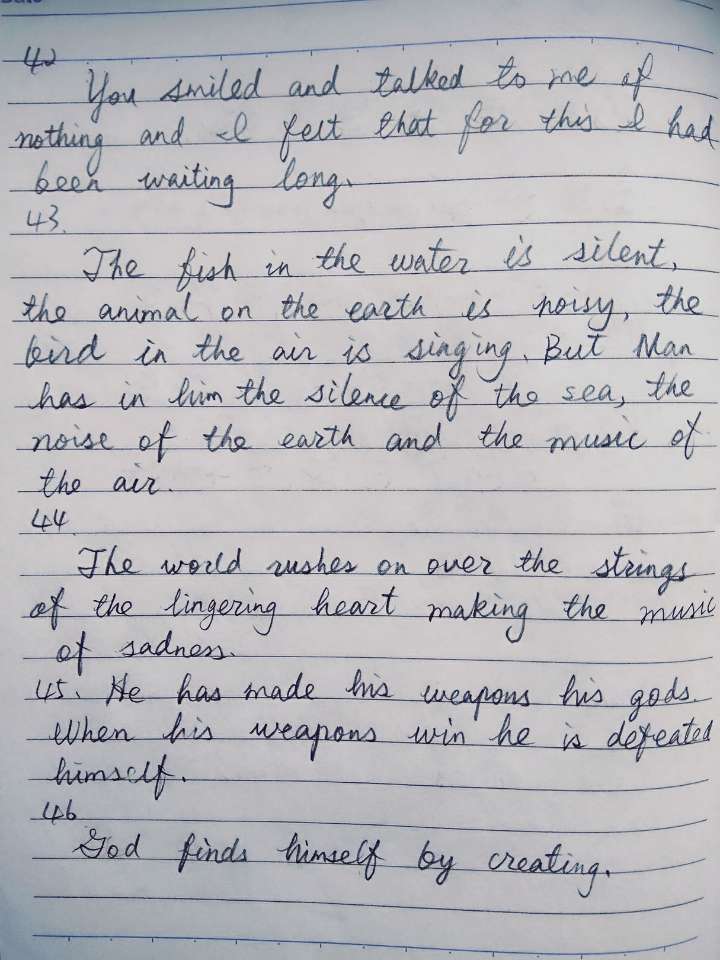 42
You smiled and talked to me of
nothing and I felt that for this I had
been waiting long.
43.
The fish in the water is silent,
the animal on the earth is noisy, the
bird in the air is singing. But Man
has in him the silence of the sea, the
noise of the earth and the music of
the air.
44
The world rushes on over the strings
of the lingering heart making the music
of sadness.
45. He has made his weapons his gods.
When his weapons win he is defeated
himself.
46
God finds himself by creating.